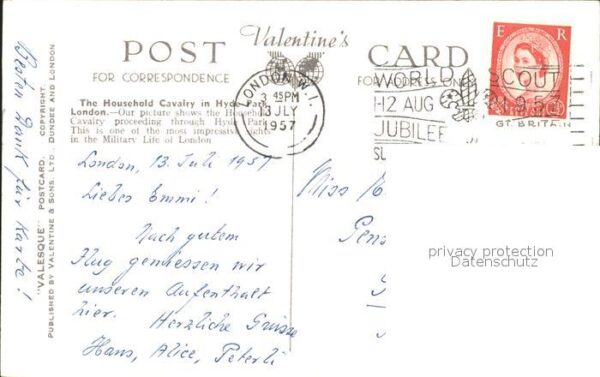 Valentine's
POST CARD
FOR CORRESPONDENCE
FOR ADDRESS ONLY
The Household Cavalry in Hyde Park,
London.—Our picture shows the Household
Cavalry proceeding through Hyde Park.
This is one of the most impressive sights
in the Military Life of London
London, 13. Juli 1957
Liebes Emmi!
Nach gutem
Flug geniessen wir
unseren Aufenthalt
hier. Herzliche Grüsse
Hans, Alice, Peterli
Besten Dank für Karte!
"VALESQUE" POSTCARD. COPYRIGHT.
PUBLISHED BY VALENTINE & SONS, LTD., DUNDEE AND LONDON
LONDON W.1.
3 45PM
13 JLY
1957
WORLD SCOUT
1-12 AUG
JUBILEE
GT. BRITAIN
E R
Miss
privacy protection
Datenschutz